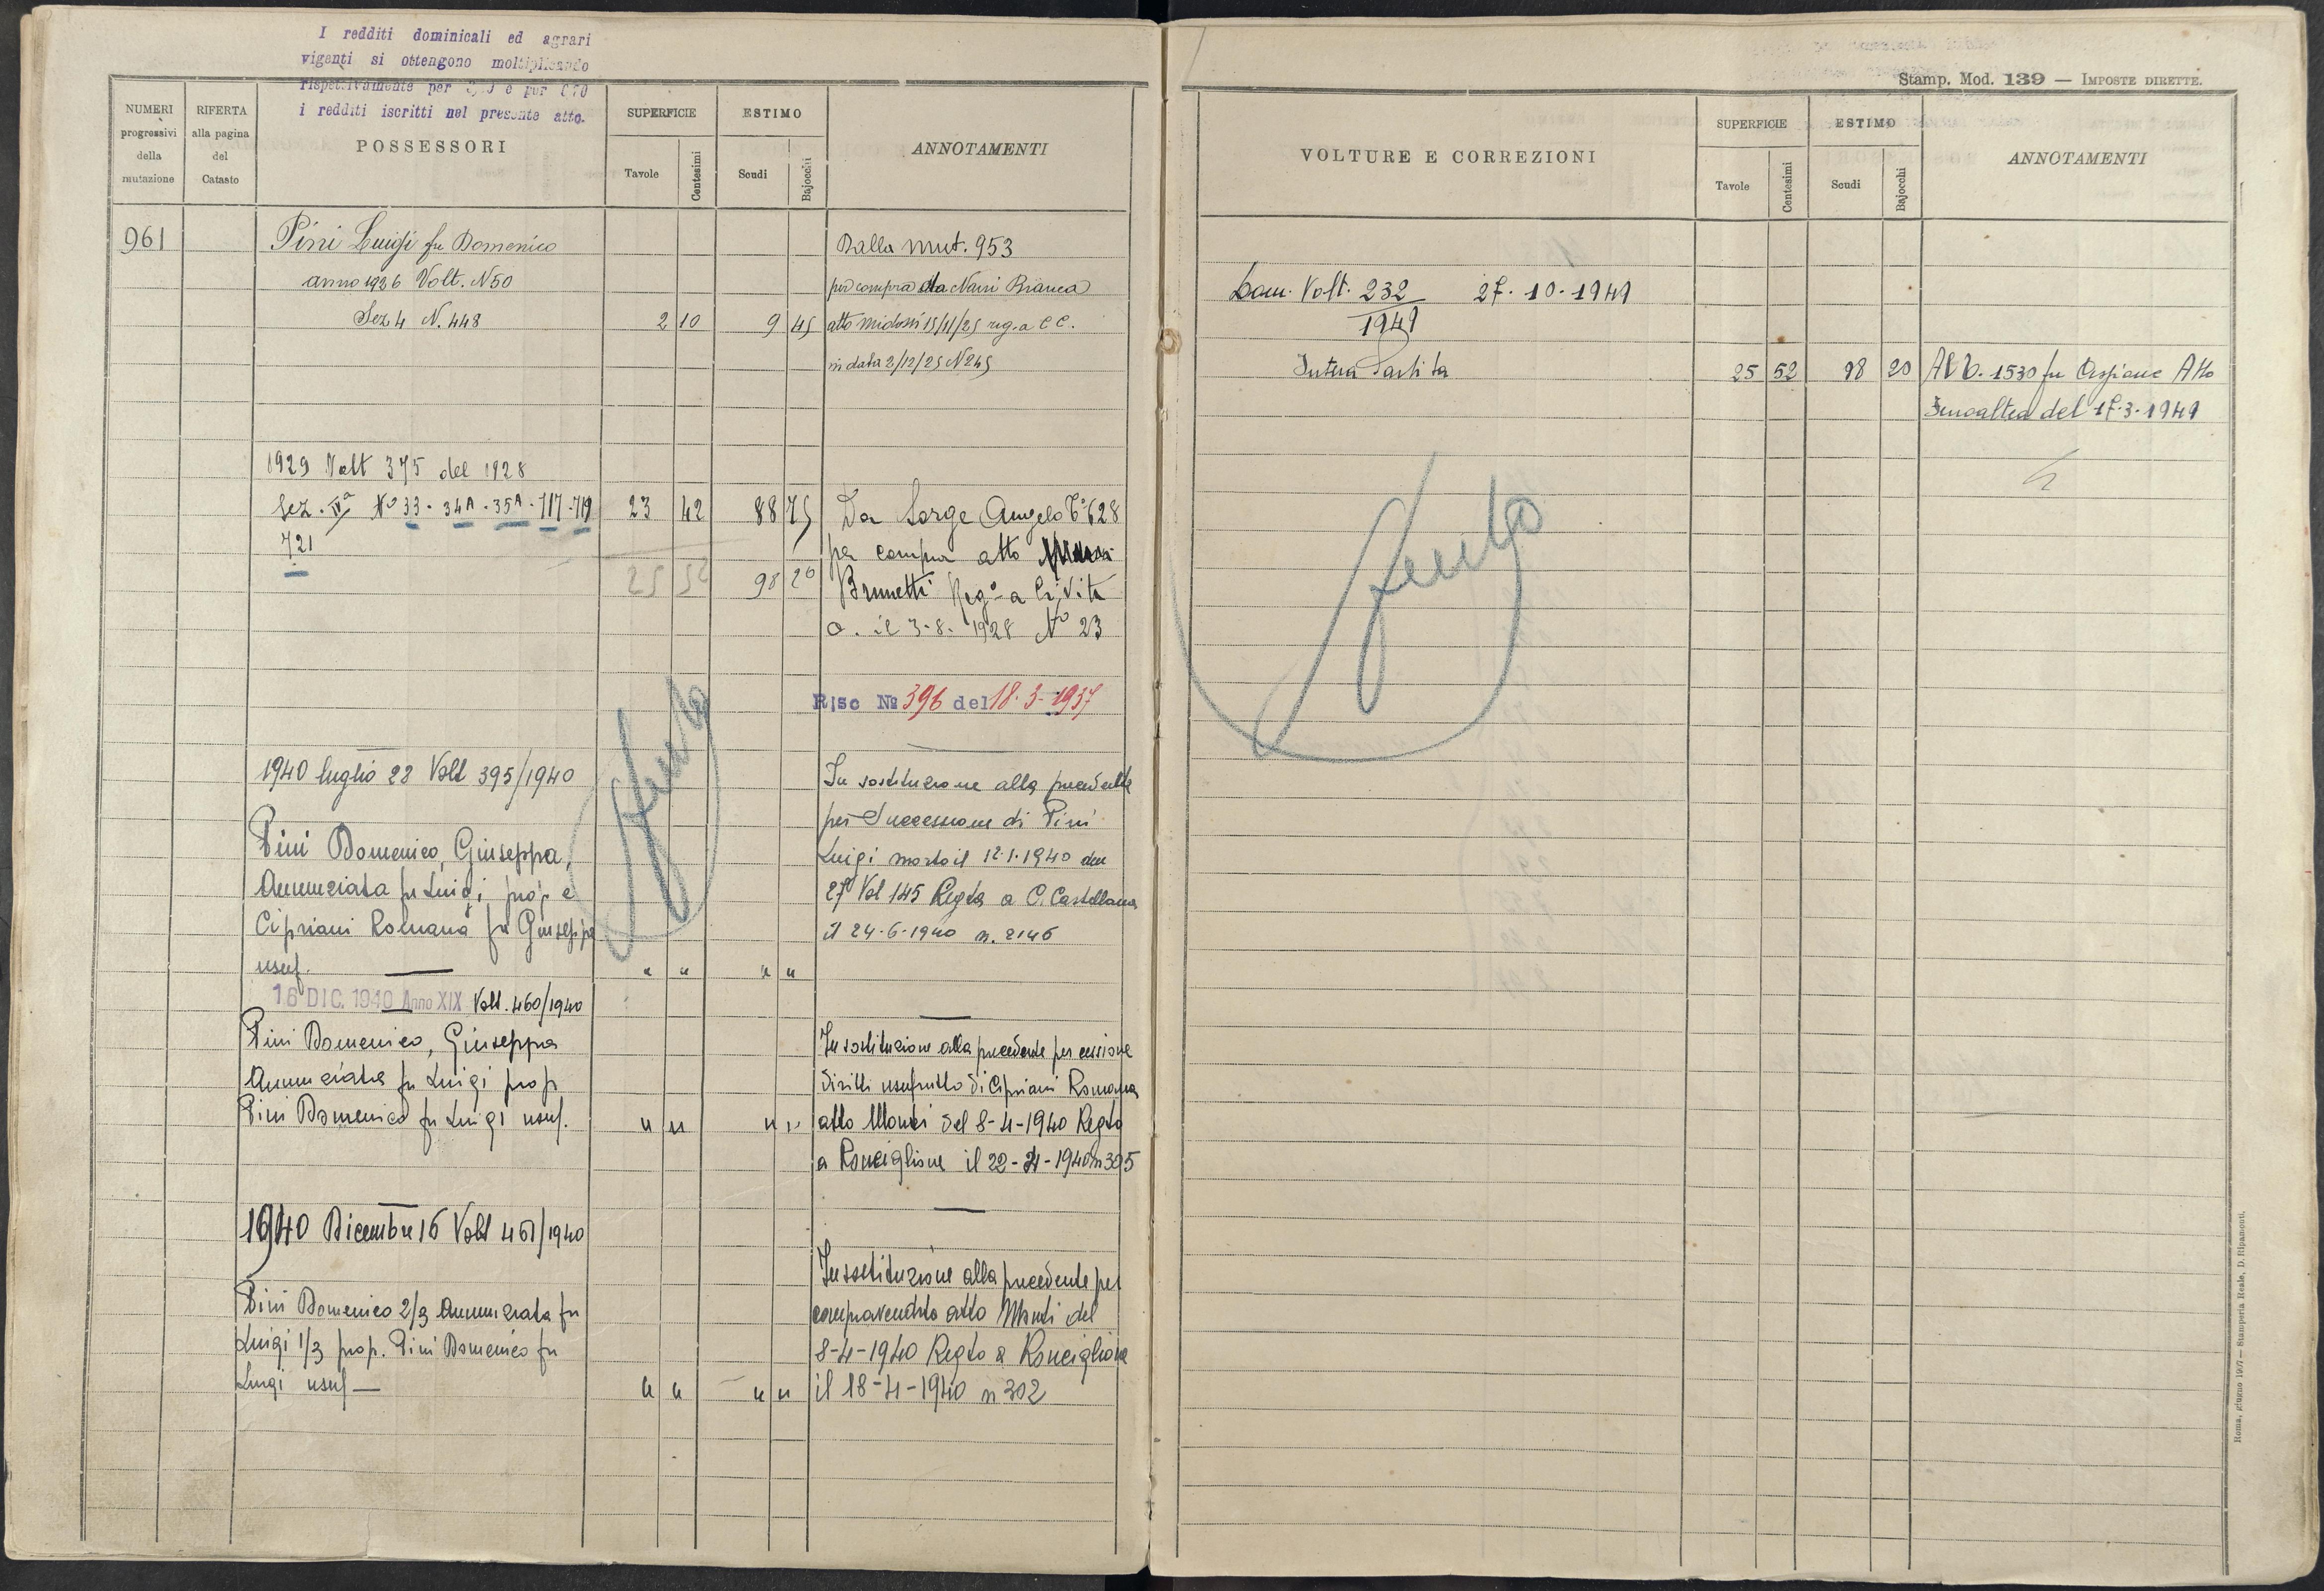 I redditi dominicali ed agrari
vigenti si ottengono moltiplicando
rispettivamente per e per
i redditi iscritti nel presente atto.
NUMERI
progressivi
della
mutazione
RIFERTA
alla pagina
del
Catasto
POSSESSORI
SUPERFICIE
Tavole
Centesimi
ESTIMO
Scudi
Bajocchi
ANNOTAMENTI
961
Pini Luigi fu Domenico
anno 1926 Volt. N 50
Sez 4 N. 448
2 10 9 45
Dalla mut. 953
per compra da Bianca
atto 15/11/25 reg. a C C.
in data 2/12/25 N 245
1929 Volt 375 del 1928
Sez. IVa No 33 - 34A - 35A - 717 - 719
721
23 42 88 75
25 52 98 20
Da Sorge Angelo 628
per compra atto
Brunetti Rego a Civita
C. il 3-8-1928 No 23
Risc No 396 del 18-3-1937
1940 luglio 23 Volt 395/1940
Pini Domenico, Giuseppa,
Annunziata fu Luigi prop e
Cipriani Romana fu Giuseppe
usuf.
" " " "
In sostituzione alla precedente
per Successione di Pini
Luigi morto il 12.1.1940 den
27 Vol 145 Regta a C. Castellana
il 24-6-1940 n. 2146
16 DIC. 1940 Anno XIX Volt. 460/1940
Pini Domenico, Giuseppa
Annunziata fu Luigi prop
Pini Domenico fu Luigi usuf.
" " " "
In sostituzione alla precedente per cessione
diritti usufrutto di Cipriani Romana
atto Monti del 8-4-1940 Regto
a Ronciglione il 22-4-1940 n 305
1940 Dicembre 16 Volt 461/1940
Pini Domenico 2/3 Annunziata fu
Luigi 1/3 prop. Pini Domenico fu
Luigi usuf —
" " " "
In sostituzione alla precedente per
compravendita atto Monti del
8-4-1940 Regto a Ronciglione
il 18-4-1940 n 302
Stamp. Mod. 139 — IMPOSTE DIRETTE.
VOLTURE E CORREZIONI
SUPERFICIE
Tavole
Centesimi
ESTIMO
Scudi
Bajocchi
ANNOTAMENTI
Dom. Volt. 232 27-10-1949
1949
Intera Partita
25 52 98 20
All b. 1530 fu Atto
del 17-3-1949
Roma, giugno 1907 — Stamperia Reale, D. Ripamonti.